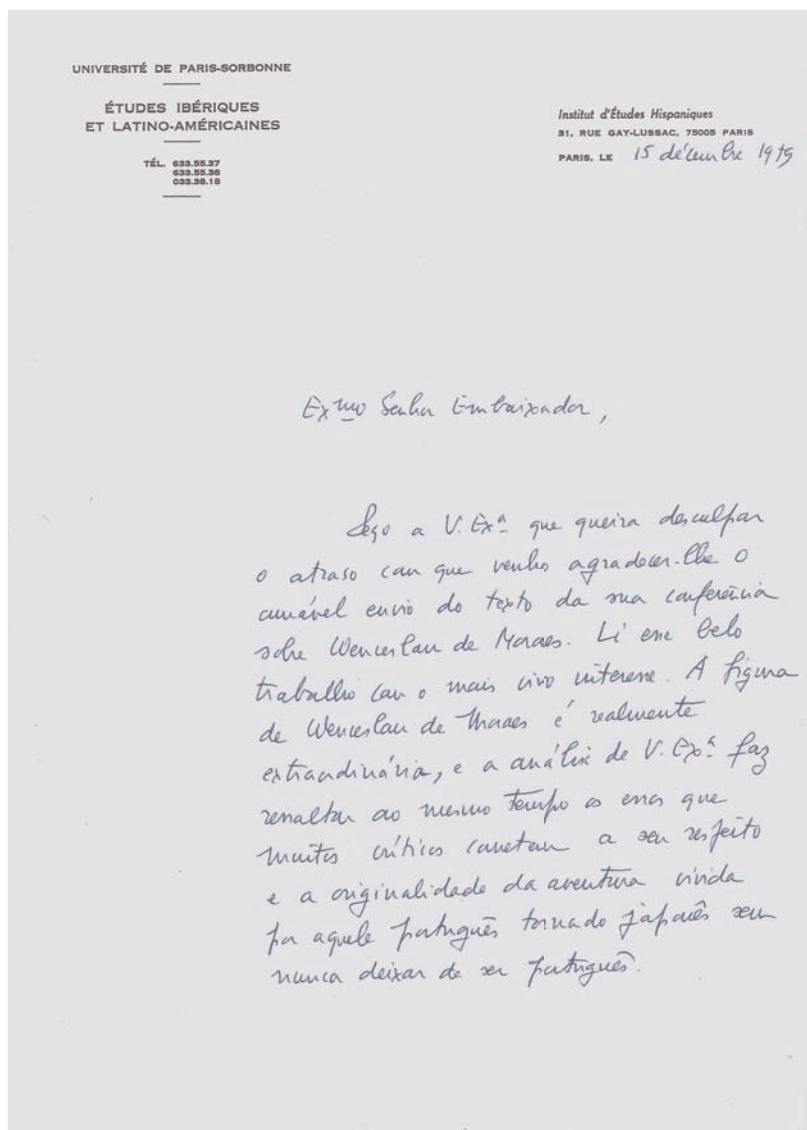 UNIVERSITÉ DE PARIS-SORBONNE
ÉTUDES IBÉRIQUES
ET LATINO-AMÉRICAINES
TÉL. 633.55.37
633.55.36
033.38.18
Institut d'Études Hispaniques
31, RUE GAY-LUSSAC, 75005 PARIS
PARIS, LE 15 décembre 1979
Exmo Senhor Embaixador,
Peço a V. Exª que queira desculpar
o atraso com que venho agradecer-lhe o
amável envio do texto da sua conferência
sobre Wenceslau de Moraes. Li esse belo
trabalho com o mais vivo interesse. A figura
de Wenceslau de Moraes é realmente
extraordinária, e a análise de V. Exª faz
ressaltar ao mesmo tempo os erros que
muitos críticos cometem a seu respeito
e a originalidade da aventura vivida
por aquele português tornado japonês sem
nunca deixar de ser português.